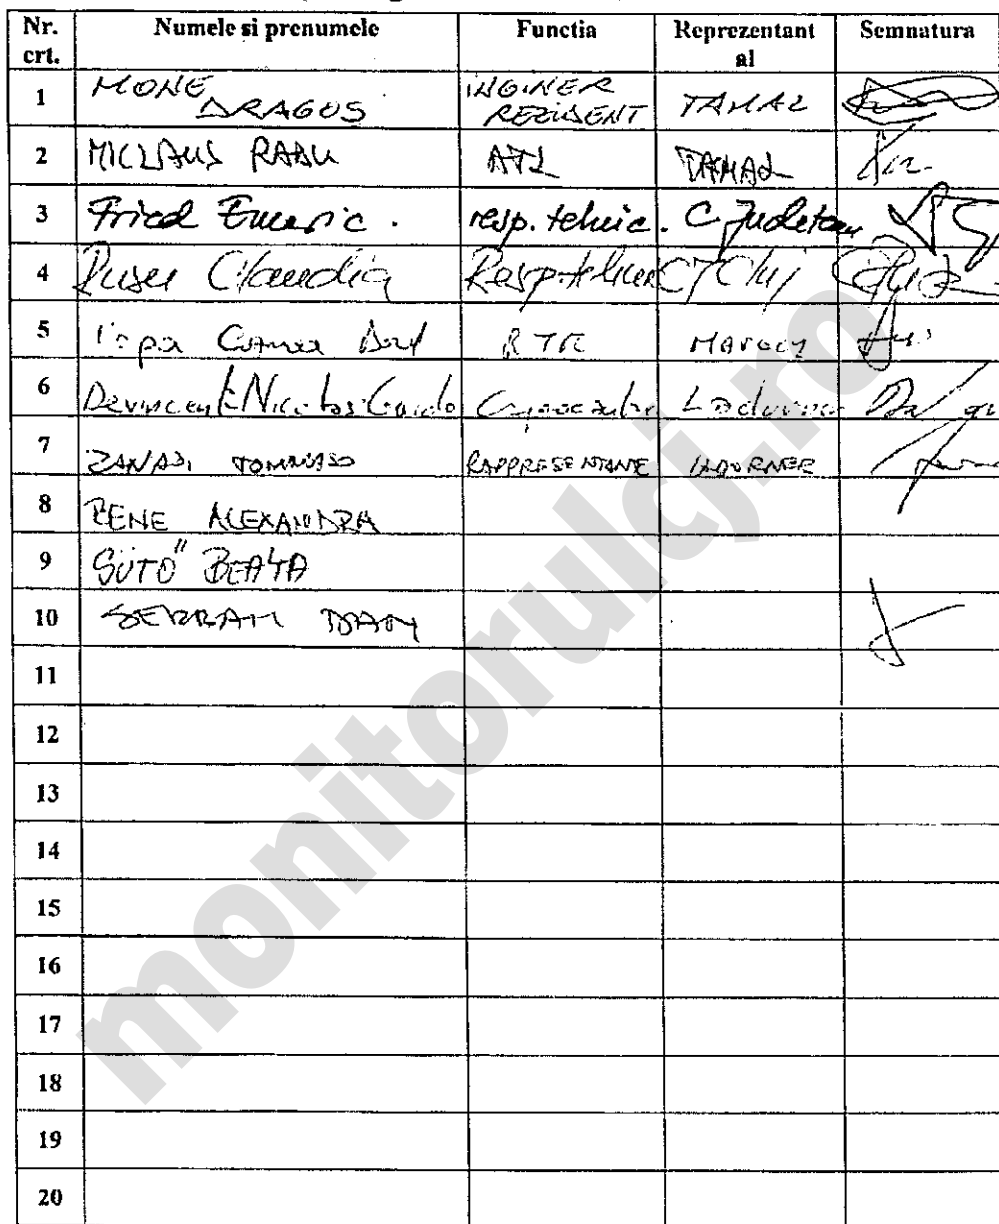 Nr. crt. Numele si prenumele Functia Reprezentant al Semnatura
1 MONE DRAGOS INGINER REZIDENT TAHAL
2 MICLAUS RADU ATL TAHAL
3 Fried Emeric. resp. tehnic. C Judetean
4 Rusu Claudia Resp. tehnic CJ Cluj
5 RTE
6 Devincenti Nicolas Guido Ladurner
7 ZANASI TOMMASO RAPPRESENTANTE LADURNER
8 BENE ALEXANDRA
9 SÜTŐ BEÁTA
10 SERBAN DAN
11
12
13
14
15
16
17
18
19
20
monitorulcj.ro